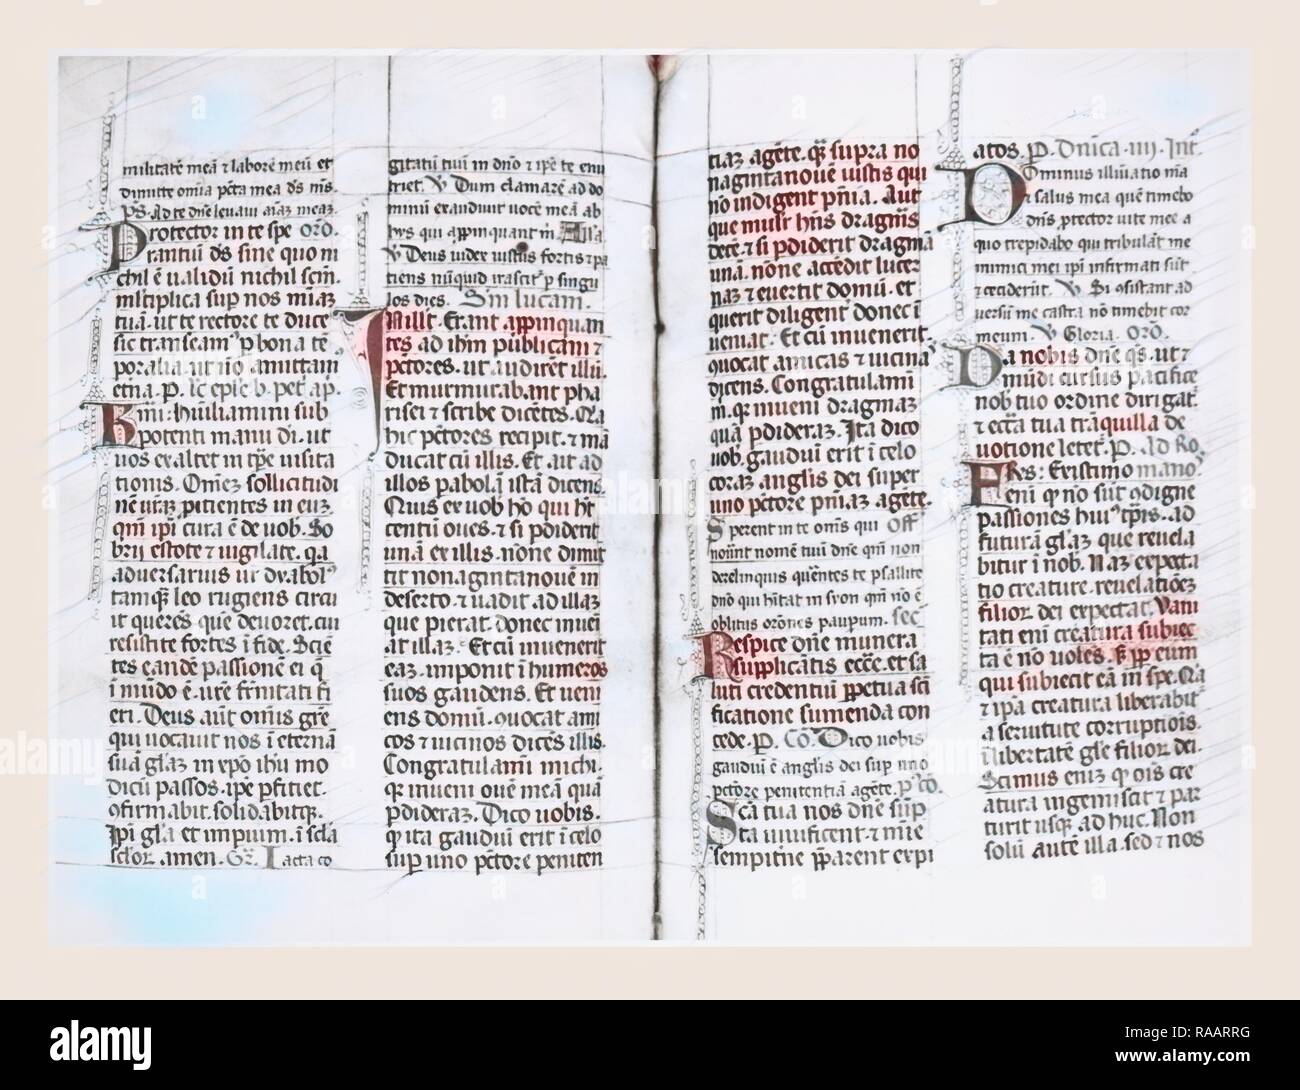 militatē meā ⁊ laborē meū et
dimitte om̄ia pc̄ta mea ds̄ m̄s.
Ps. Ad te dn̄e leuaui aīaꝫ meaꝫ.
Protector in te spe Orō.
rantiū ds̄ sine quo ni
chil ē ualidū nichil scm̄.
mltiplica sup nos mīaꝫ
tuā. ut te rectore te duce
sic transeam᷒ p bona tē
poralia. ut nō amittam᷒
etna. P. lc̄ epīe b. pet ap.
Rm̄i. huiliamini sub
potenti manu dī. ut
uos exaltet in tpe uisita
tionis. Om̄eꝫ sollicitudi
nē ur̄aꝫ picientes in eū.
qm̄ ipī cura ē de uob. So
brij estote ⁊ uigilate. qa
aduersarius ur̄ diabol᷒
tamqꝫ leo rugiens circu
it querēs que deuoret. cui
resistite fortes ī fide. Sciē
tes eandē passionē ei q
ī mūdo ē ur̄e fr̄nitati fi
eri. Deus aūt om̄is grē
qui uocauit nos ī eternā
suā gl̄aꝫ in xpō ihū mo
dicū passos. ipē pfitiet.
ofirmabit. solidabitqꝫ.
Ipī gl̄a et impium. ī scl̄a
scl̄oꝝ. amen. Gr̄. Iacta co
gitatū tuū in dn̄o ⁊ ipē te enu
triet. ℣ Dum clamarē ad do
minū exaudiuit uocē meā ab
hys qui appinquant m̄. Alla
℣ Deus iudex iustus fortis ⁊ pa
tiens nūquid irascit᷒ p singu
los dies. Sm̄ lucam.
In illt. Erant appinquan
tes ad ihm̄ publicani ⁊
pctores. ut audirēt illū.
Et murmurabant pha
risei ⁊ scribe dicētes. Qa
hic pctores recipit. ⁊ mā
ducat cū illis. Et ait ad
illos pabolā istā dicens.
Quis ex uob hō qui ht
centū oues. ⁊ si pdiderit
unā ex illis. nōne dimit
tit nonagintanouē in
deserto. ⁊ uadit ad illaꝫ
que pierat. donec inueī
at illaꝫ. Et cū inuenerit
eaꝫ. imponit ī humeros
suos gaudens. Et ueni
ens domū. quocat ami
cos ⁊ uicinos dicēs illis.
Congratulamī michi.
qꝫ inueni ouē meā quā
pdideraꝫ. Dico uobis.
qꝫ ita gaudiū erit ī celo
sup uno pctore peniten
tiaꝫ agēte. qꝫ supra no
nagintanouē iustis qui
nō indigent pnīa. Aut
que mulr̄ hn̄s dragm̄s
decē. ⁊ si pdiderit dragmā
unā. nōne accēdit lucer
naꝫ ⁊ euertit domū. et
querit diligent᷒ donec ī
ueniat. Et cū inuenerit.
quocat amicas ⁊ uicinas
dicens. Congratulamī
m̄. qꝫ inueni dragmaꝫ
quā pdideraꝫ. Ita dico
uob. gaudiū erit ī celo
coraꝫ anglis dei super
uno pctore pnīaꝫ agēte.
Sperent in te om̄s qui Off̄
nouūt nomē tuū dn̄e qm̄ non
derelinquis querētes te psallite
dn̄o qui hītat in syon qm̄ nō ē
oblitus orōnes paupum. sec̄
Respice dn̄e munera
supplicātis eccē. et sa
luti credentiū ppetua sc̄i
ficatione sumenda con
cede. P. Co. Dico uobis
gaudiū ē anglis dei sup uno
pctore penitentiā agēte. P᷒ co.
Scā tua nos dn̄e sūp
ta uiuificent. ⁊ mīe
sempitn̄e pparent expi
atos. P. Dn̄ica iiij. Int.
Dominus illūiatio mā
⁊ salus mea quē timebo
dn̄s ptector uite mee a
quo trepidabo qui tribulāt me
inimici mei ipī infirmati sūt
⁊ ceciderūt. ℣ Si osistant ad
uersū me castra nō timebit cor
meum. ℣ Gloria. Orō.
Da nobis dn̄e qs. ut ⁊
mūdi cursus pacifice
nob tuo ordine dirigat᷒.
⁊ ecc̄ā tua trāquilla de
uotione letet᷒. P. Ad Ro.
Frēs: Existimo mano,
eni qꝫ nō sūt 9digne
passiones hui᷒ tpis. ad
futurā gl̄aꝫ que reuela
bitur ī nob. Naꝫ expecta
tio creature. reuelatiōeꝫ
filioꝝ dei expectat. Vani
tati enī creatura subiec
ta ē nō uolēs. sꝫ pp eum
qui subiecit eā in spe. Qa
⁊ ipā creatura liberabit᷒
a seruitute corruptiōis.
ī libertatē gl̄e filioꝝ dei.
Scimus enīꝫ qꝫ oīs cre
atura ingemiscit ⁊ par
turit usqꝫ ad huc. Non
solū autē illa. sed ⁊ nos
alamy
alamy
alamy
a
a
a
a
alamy
Image ID: RAARRG
www.alamy.com